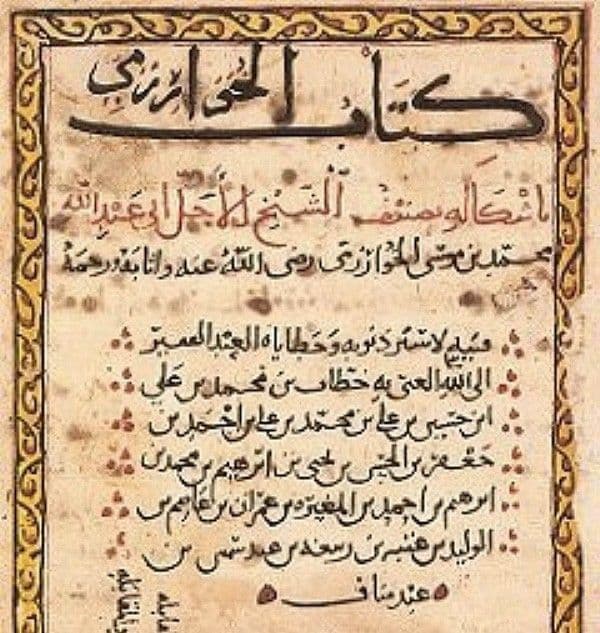 كتاب الخوارزمي
باشكاله تصنيف الشيخ الأجل ابي عبد الله
محمد بن موسى الخوارزمي رضي الله عنه واثابه ورحمه
ذنوبه وخطاياه العبد الفقير
الى الله الغني به خطاب بن محمد بن علي
ابن حسين بن علي بن محمد بن علي بن احمد بن
جعفر بن الحسن بن يحيى بن ابرهيم بن محمد بن
ابرهيم بن احمد بن المغيره بن عمران بن عاصم بن
الوليد بن عتبه بن ربيعه بن عبد شمس بن
عبد مناف